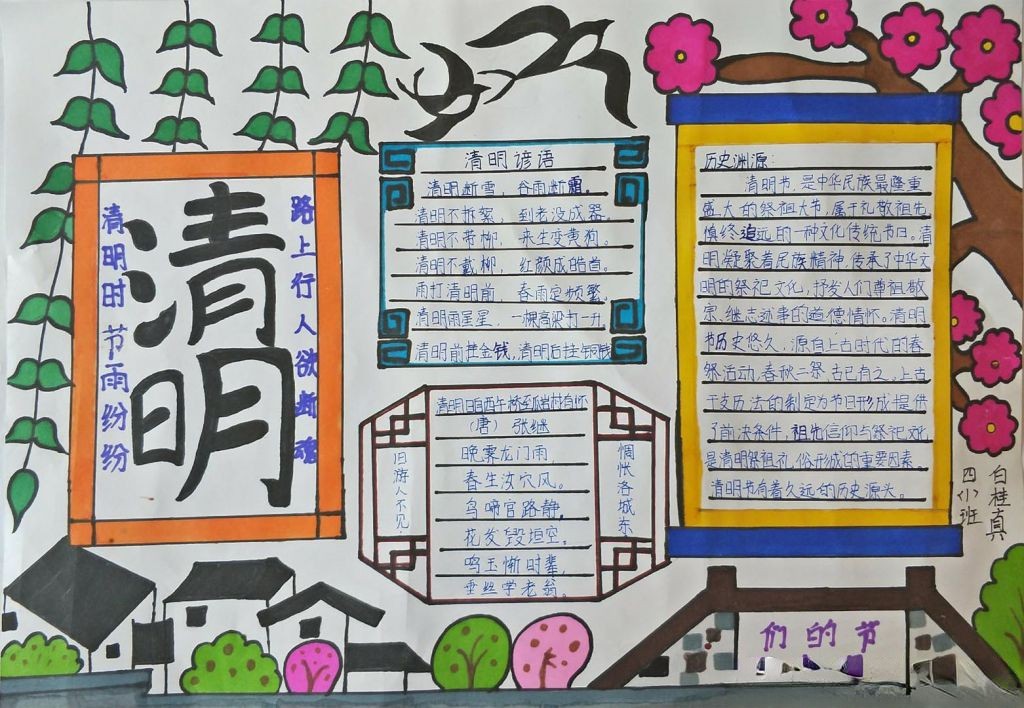 清明
路上行人欲断魂
清明时节雨纷纷
清明谚语
清明断雪，谷雨断霜。
清明不拆絮，到老没成器。
清明不带柳，来生变黄狗。
清明不戴柳，红颜成皓首。
雨打清明前，春雨定频繁。
清明雨星星，一棵高粱打一升
清明前挂金钱，清明后挂铜钱
清明日自西午桥至瓜岩村有怀
（唐）张继
晚霁龙门雨，
春生汝穴风。
鸟啼官路静，
花发毁垣空。
鸣玉惭时辈，
垂丝学老翁。
旧游人不见，
惆怅洛城东
历史渊源：
清明节，是中华民族最隆重
盛大的祭祖大节，属于礼敬祖先、
慎终追远的一种文化传统节日。清
明凝聚着民族精神，传承了中华文
明的祭祀文化，抒发人们尊祖敬
宗、继志述事的道德情怀。清明
节历史悠久，源自上古时代的春
祭活动，春秋二祭，古已有之。上古
干支历法的制定为节日形成提供
了前决条件，祖先信仰与祭祀文化
是清明祭祖礼俗形成的重要因素。
清明节有着久远的历史源头。
四（小）班
白桂真
们的节